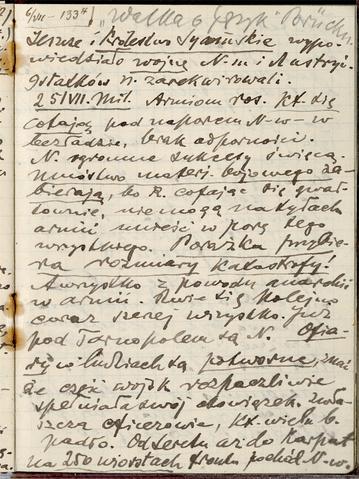 6/VIII - 1334 "Walka o język
Jeszcze i Królestwo Syamskie wypo-
wiedziało wojnę N-m i Austryi.
9 statków n. zarekwirowali.
25/VII. Mil. Armiom ros. kt. się
cofają pod naporem N-w - w
bezładzie, brak odporności.
N. ogromne sukcesy święcą.
mnóstwo materj. bojowego za-
bierają, bo R. cofając się gwał-
townie, nie mogą na tyłach
armii unieść w porę tego
wszystkiego. Porażka przybie-
ra rozmiary katastrofy!
A wszystko z powodu anarchii
w armii. Rwie się kolejno
coraz szerzej wszystko. Już
pod Tarnopolem są N. Ofia-
ry w ludziach są potworne, znać
że część wojsk rozpaczliwie
spełniała swój obowiązek, zwła-
szcza oficerowie, kt. wielu b.
padło. Od Seretu aż do Karpat
na 250 wiorstach frontu N-w.